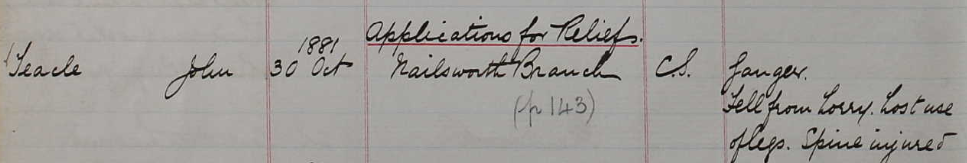 Applications for Reliefs.
Teacle John 30 1881 Oct Nailsworth Branch C.S. Ganger.
(p 143) Fell from Lorry. Lost use
of legs. Spine injured